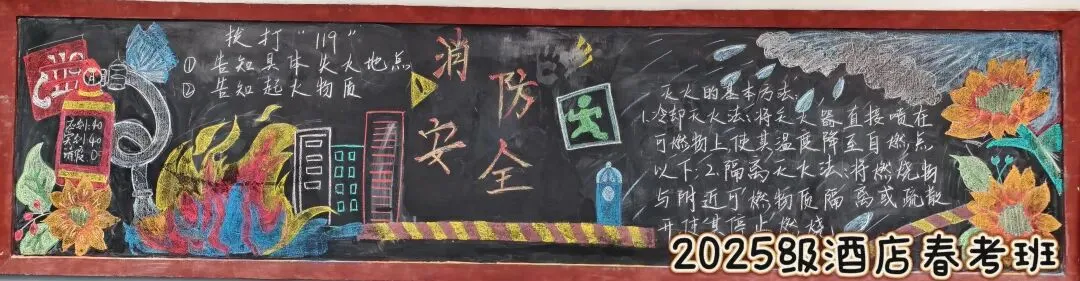 拨打“119”
① 告知具体失火地点
② 告知起火物质
消防安全
灭火的基本方法:
1.冷却灭火法:将灭火器直接喷在
可燃物上使其温度降至自燃点
以下;2.隔离灭火法:将燃烧物
与附近可燃物质隔离或疏散
开使其停止燃烧
2025级酒店春考班